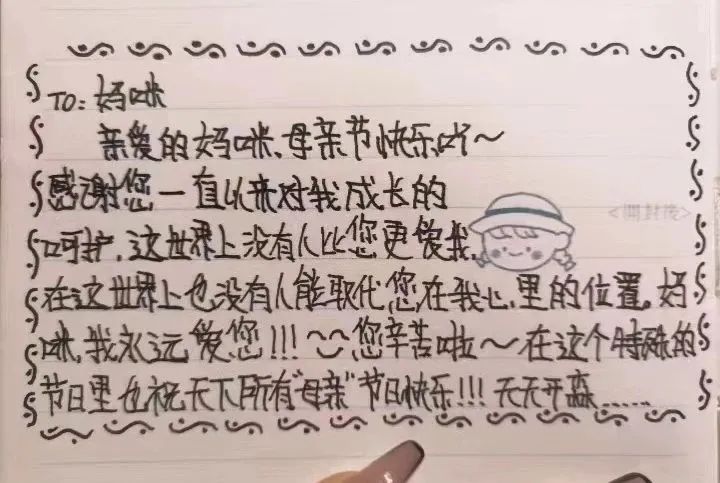 TO: 妈咪
亲爱的妈咪、母亲节快乐吖～
感谢您一直以来对我成长的
呵护、这世界上没有人比您更爱我、
<開封後>
在这世界上也没有人能取代您在我心里的位置。妈
咪、我永远爱您!!!您辛苦啦～在这个特殊的
节日里也祝天下所有“母亲”节日快乐!!!天天开森......